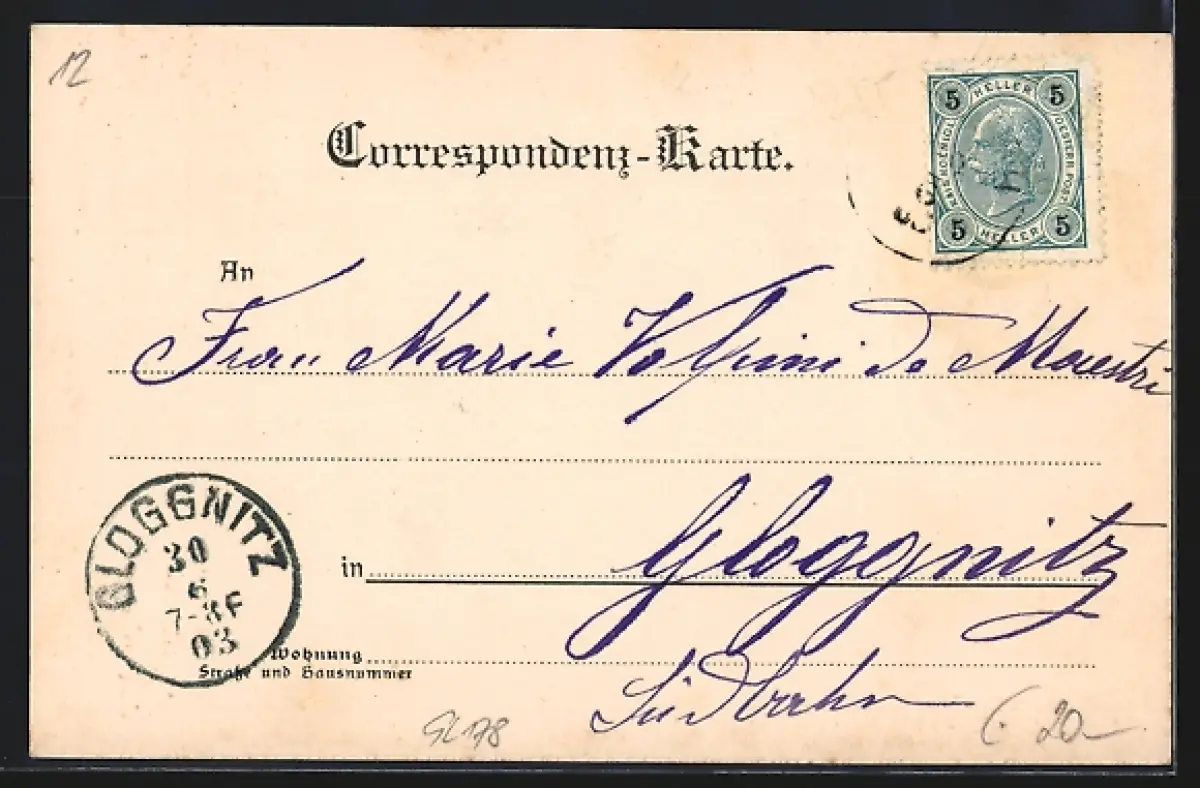 12
Correspondenz-Karte.
5 HELLER 5
KAIS. KOENIGL. OESTERR. POST.
5 HELLER 5
An
Frau Marie Volpini de Maestri
in Gloggnitz
GLOGGNITZ
30
6
7-8F
03
Wohnung
Straße und Hausnummer
Südbahn
20